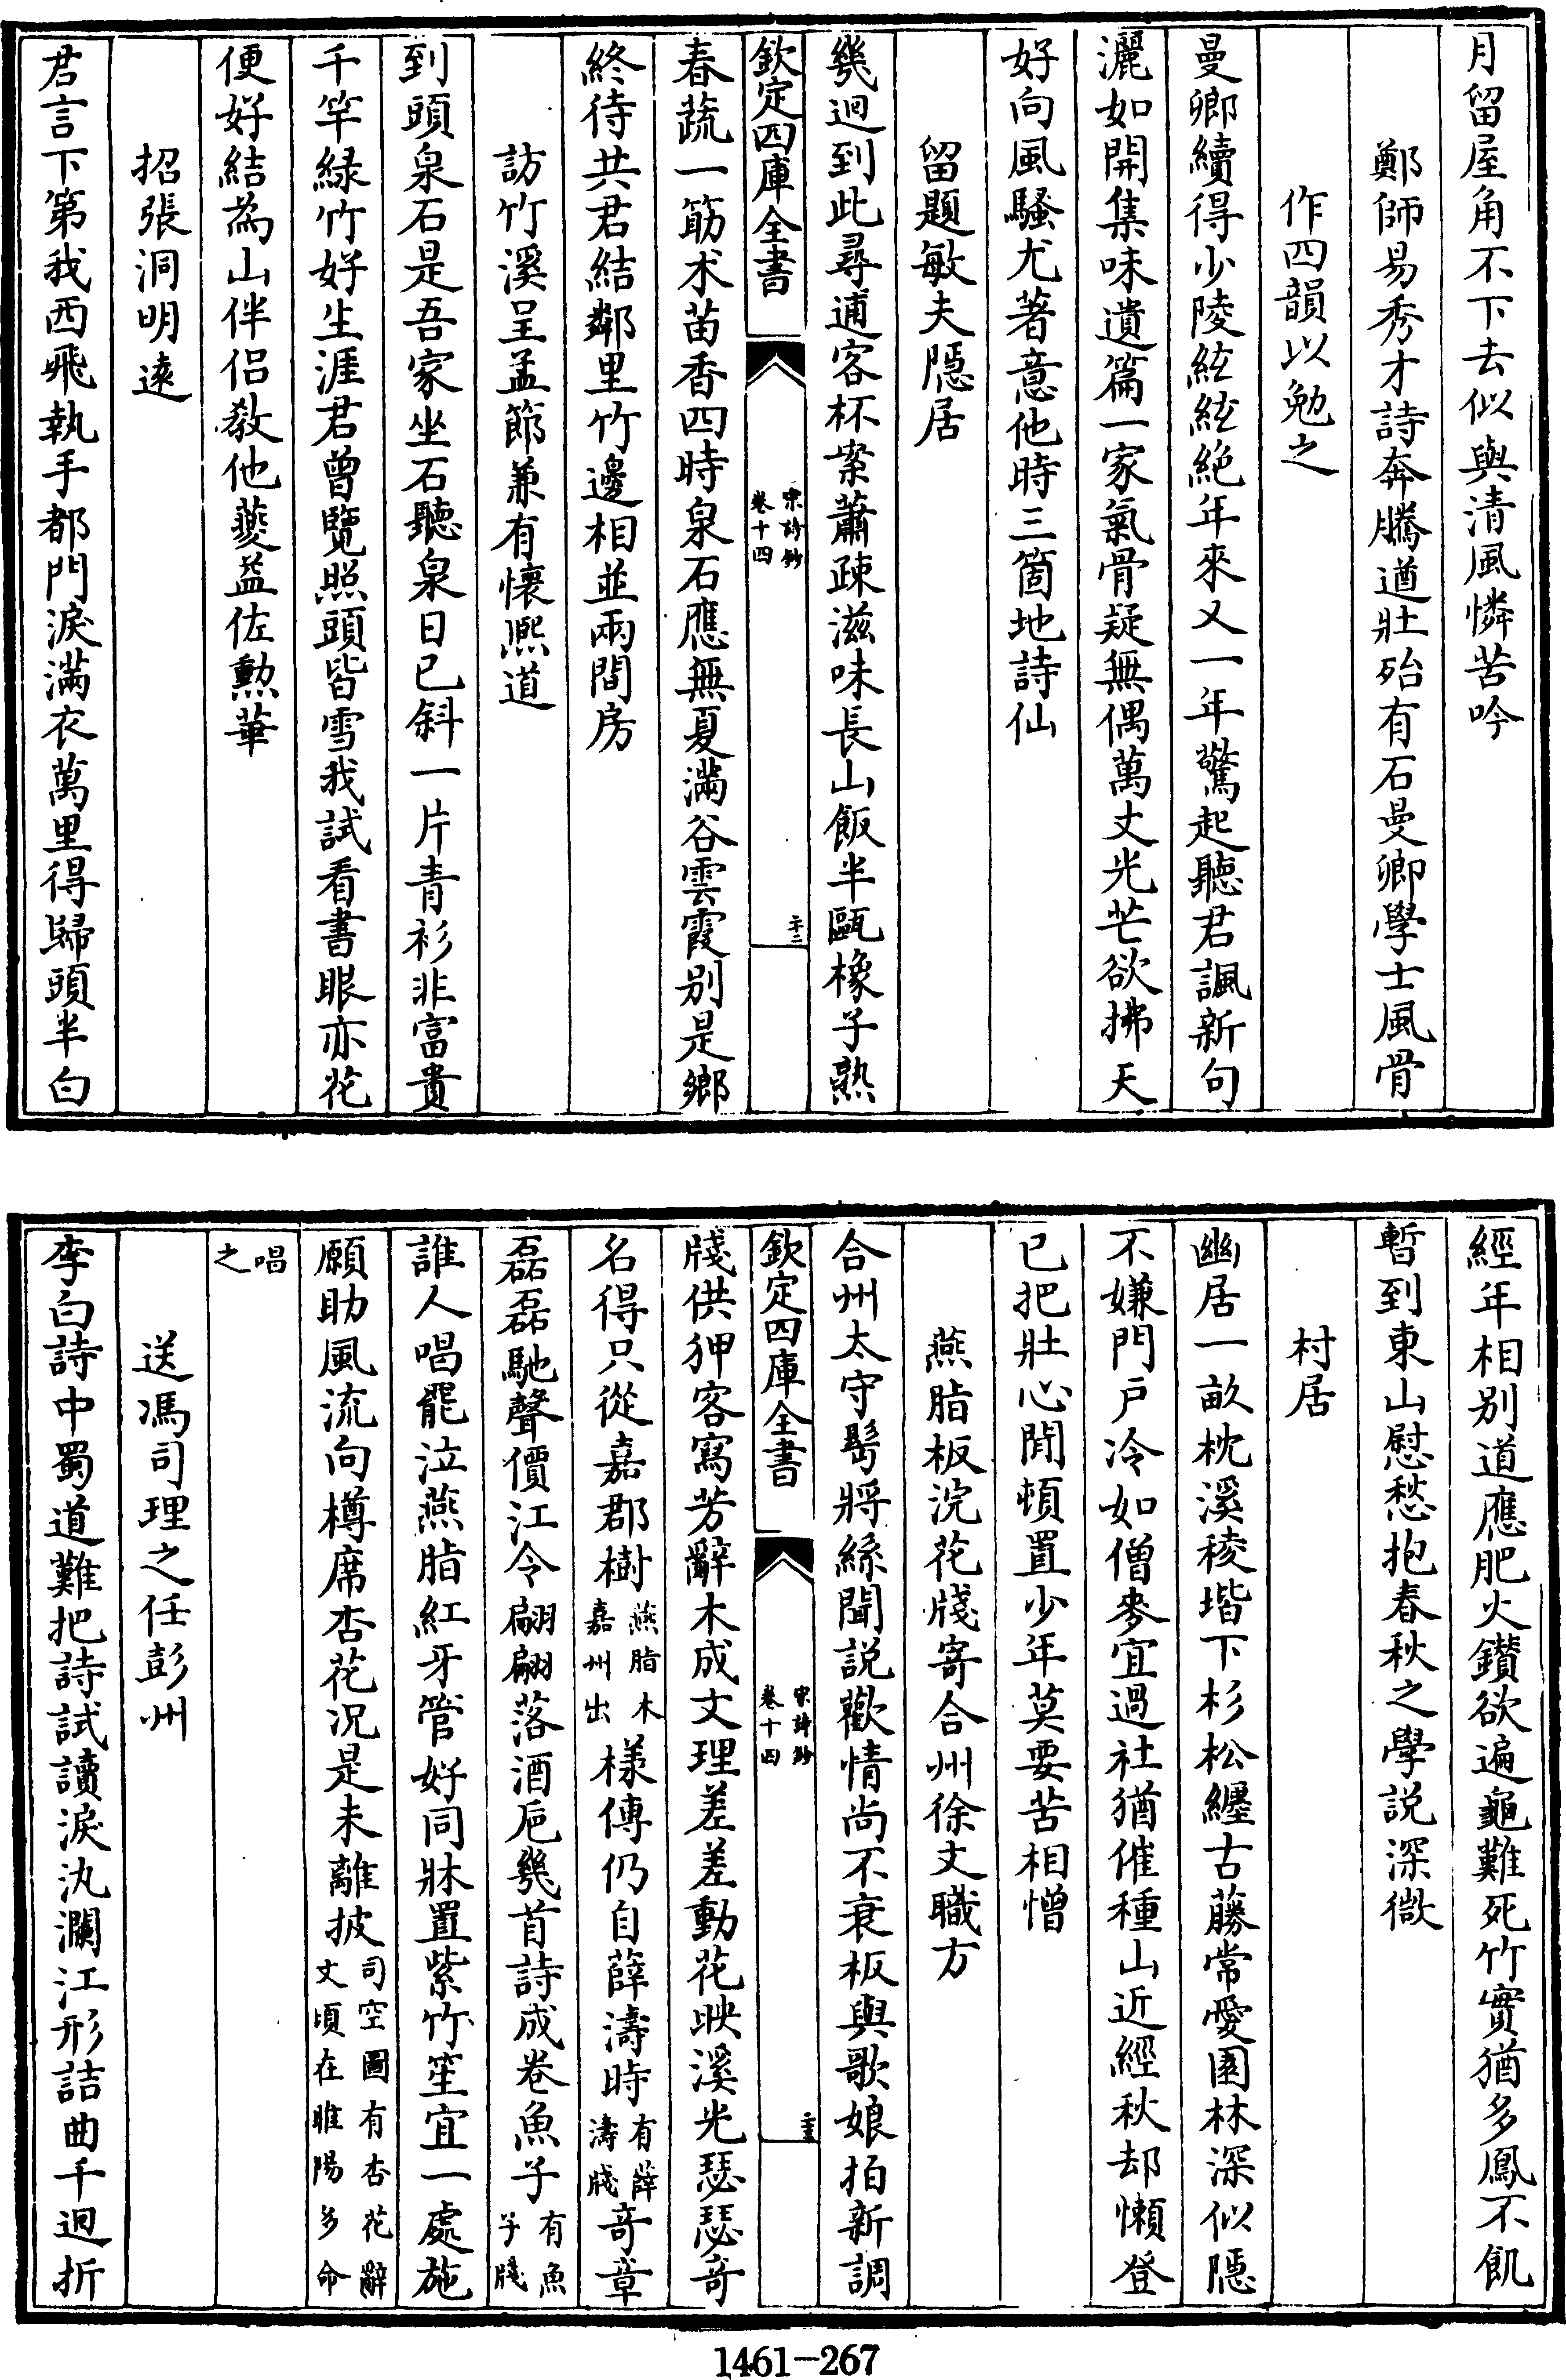 月留屋角不下去似與清風憐苦吟
鄭師易秀才詩奔騰遒壯殆有石曼卿學士風骨
作四韻以勉之
曼卿續得少陵絃絃絶年來又一年驚起聽君諷新句
灑如開集味遺篇一家氣骨疑無偶萬丈光芒欲拂天
好向風騷尤著意他時三箇地詩仙
留題敏夫隱居
幾迴到此尋逋客杯案蕭疎滋味長山飯半甌橡子熟
欽定四庫全書
宋詩鈔
卷十四
二十二
春蔬一筯术苗香四時泉石應無夏滿谷雲霞别是鄉
終待共君結鄰里竹邊相並兩間房
訪竹溪呈孟節兼有懷熈道
到頭泉石是吾家坐石聽泉日已斜一片青衫非富貴
千竿緑竹好生涯君曾覽照頭皆雪我試看書眼亦花
便好結為山伴侣教他夔益佐勲華
招張洞明逺
君言下第我西飛執手都門淚滿衣萬里得歸頭半白
經年相别道應肥火鑽欲遍龜難死竹實猶多鳳不飢
暫到東山慰愁抱春秋之學説深微
村居
幽居一畝枕溪稜堦下杉松纒古藤常愛園林深似隱
不嫌門戸冷如僧麥宜過社猶催種山近經秋却懶登
已把壯心閒頓置少年莫要苦相憎
燕脂板浣花牋寄合州徐文職方
合州太守鬂將絲聞説歡情尚不衰板與歌娘拍新調
欽定四庫全書
宋詩鈔
卷十四
二十三
牋供狎客寫芳辭木成文理差差動花映溪光瑟瑟竒
名得只從嘉郡樹燕脂木嘉州出様傳仍自薛濤時有薛濤牋竒章
磊磊馳聲價江令翩翩落酒巵幾首詩成卷魚子有魚子牋
誰人唱罷泣燕脂紅牙管好同牀置紫竹笙宜一處施
願助風流向樽席杏花况是未離披司空圖有杏花辭文頃在睢陽多命
唱之
送馮司理之任彭州
李白詩中蜀道難把詩試讀淚汍瀾江形詰曲千迴折
1461-267